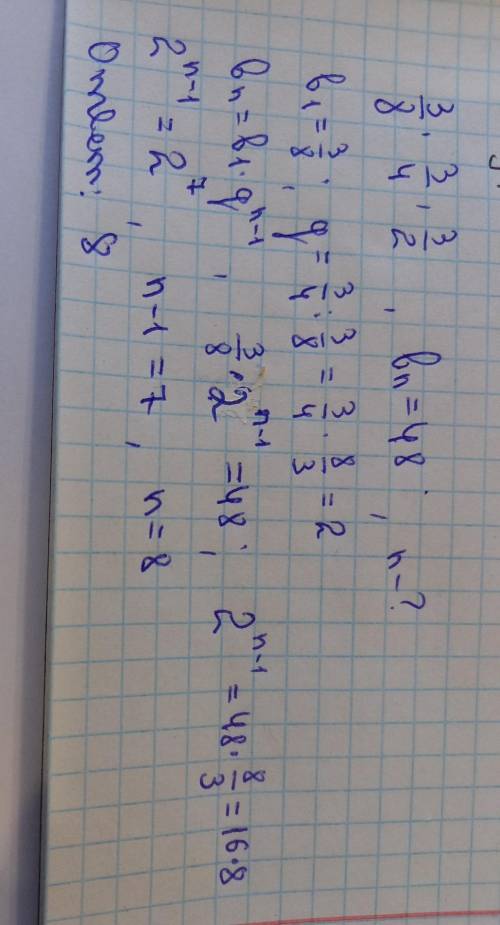 3/8, 3/4, 3/2, bn = 48, n - ?
b1 = 3/8, q = 3/4 : 3/8 = 3/4 · 8/3 = 2
bn = b1 · q^(n-1), 3/8 · 2^(n-1) = 48, 2^(n-1) = 48 · 8/3 = 16 · 8
2^(n-1) = 2^7, n-1 = 7, n = 8
Ответ: 8